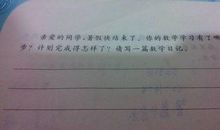 亲爱的同学,暑假快结束了,你的数学学习有了哪
步?计划完成得怎样了?请写一篇数学日记。